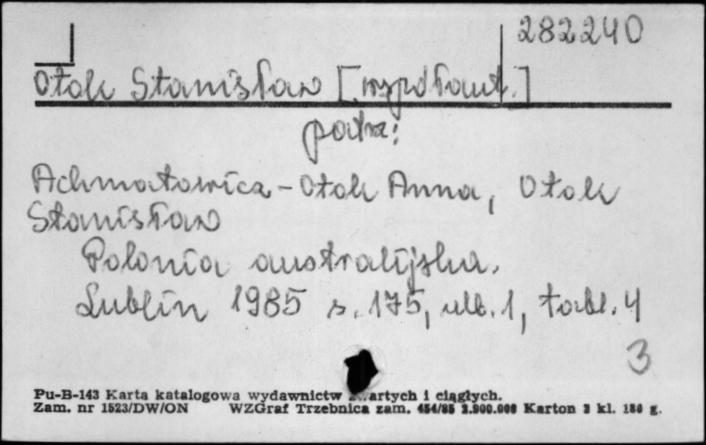 282240
Otok Stanisław [współaut.]
patrz:
Achmatowicz-Otok Anna, Otok
Stanisław
Polonia australijska.
Lublin 1985 s. 175, ulb. 1, tabl. 4
3
Pu-B-143 Karta katalogowa wydawnictw zwartych i ciągłych.
Zam. nr 1523/DW/ON WZGraf Trzebnica zam. 454/85 2.900.000 Karton 3 kl. 180 g.